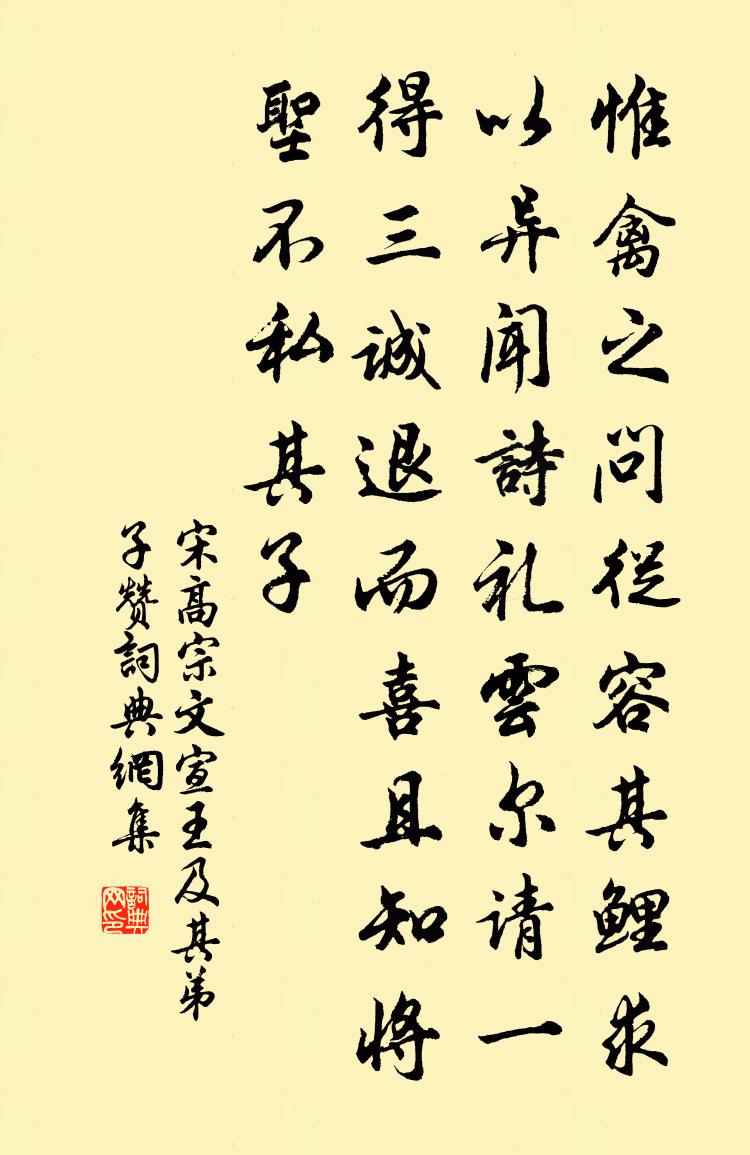 惟禽之问從容其鲤求
以异闻詩礼雲尔请一
得三诚退而喜且知将
聖不私其子
宋高宗文宣王及其弟
子赞詞典網集
詞典網印